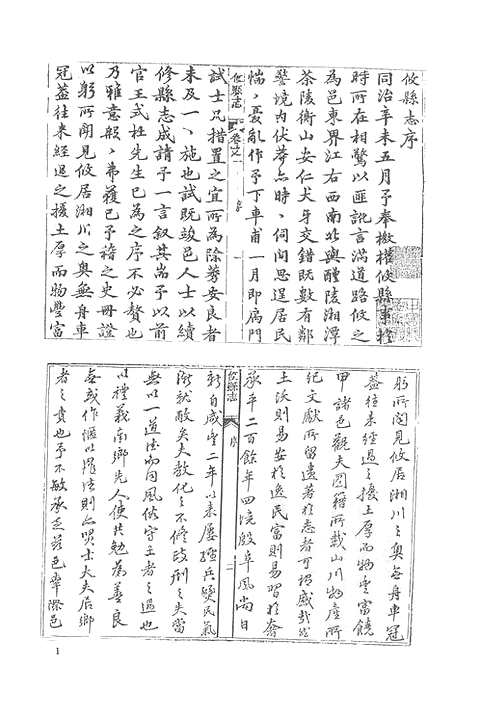 攸縣志序
同治辛未五月予奉檄權攸縣事維
時所在相驚以匪訛言滿道路攸之
為邑東界江右西南北與醴陵湘潭
茶陵衡山安仁犬牙交錯既數有鄰
警境內伏莽亦時、伺間思逞居民
惴、憂亂作予下車甫一月即扃門
攸縣志 卷之 序 一
試士凡措置之宜所為除莠安良者
未及一、施也試既竣邑人士以續
修縣志成請予一言叙其耑予以前
官王式杜先生已為之序不必贅也
乃雅意殷、弗獲已予稽之史冊證
以躬所聞見攸居湘川之奧無舟車
冠蓋往來經過之擾土厚而物豐富
躬所聞見攸居湘川之奧無舟車冠
蓋往來經過之擾土厚而物豐富饒
甲諸邑觀夫圖籍所載山川物產所
紀文獻所留遺著於志者可謂盛哉然
土沃則易安於逸民富則易習於奢
承平二百餘年四境殷阜風尚日
攸縣志 序 二
新自咸豐二年以來屢經兵燹民氣
漸就
無以一道法而同風俗守土者之過也
以禮義南鄉先人使共勉為善良
無或作慝以罹法則亦哭士大夫居鄉
者之責也予不敏承乏茲邑
1